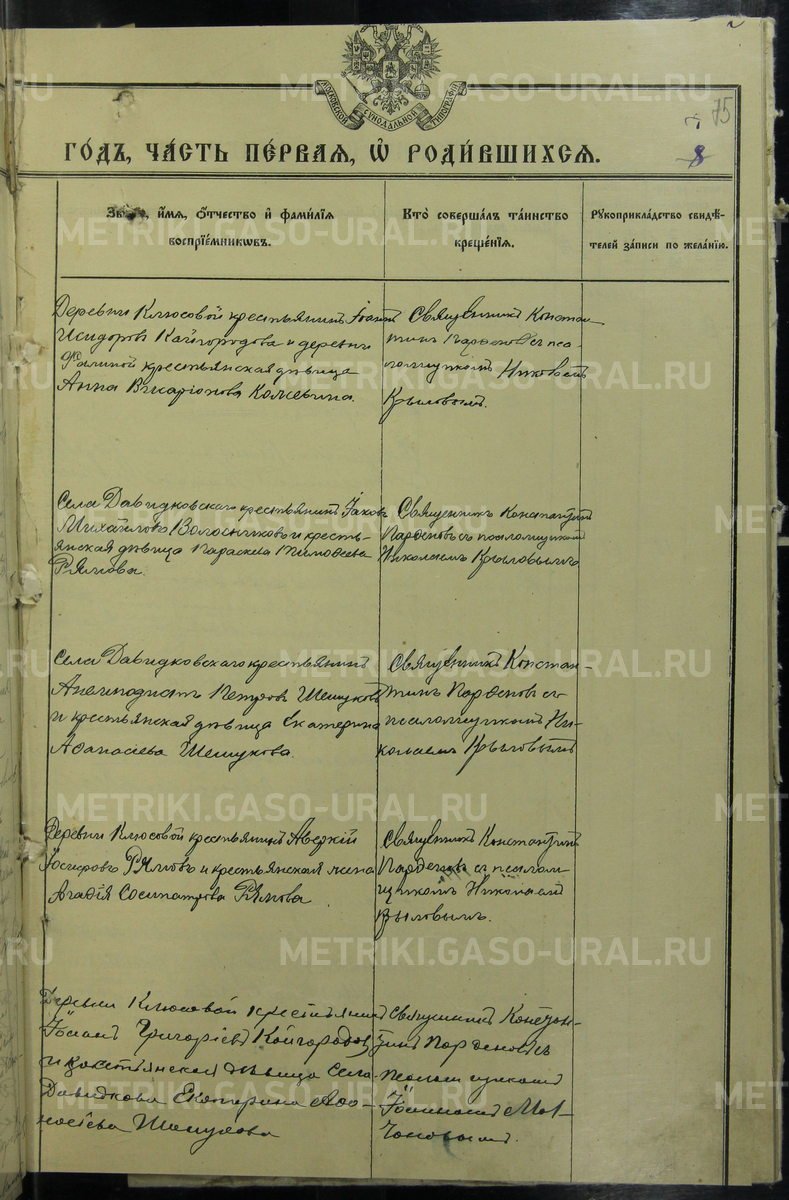 МОСКОВСКОЙ СѴНОДАЛЬНОЙ ТИПОГРАФІИ
75
8
ГО́ДЪ, ЧА́СТЬ ПЕ́РВАЯ, Ѡ҆ РОДИ́ВШИХСЯ.
и҆́мя, ѻ҆́тчество и҆ фами́лїя
воспрїе́мникѡвъ.
Кто̀ соверша́лъ та́инство
креще́нїя.
Рꙋкоприкла́дство свидѣ́-
телей за́писи по жела́нїю.
Деревни Клюсовой крестьянинъ Іоаннъ
Исидоровъ Кайгородова и деревни
крестьянская дѣвица
Анна
Священникъ Констан-
тинъ Парѳеновъ съ пса-
ломщикомъ Николаемъ
Крыловымъ.
Села Давидковскаго крестьянинъ Іаковъ
Михаиловъ Волосниковъ и кресть-
янская дѣвица Параскева Тимоѳеева
Рямова.
Священникъ Константинъ
Парѳеновъ съ псаломщикомъ
Николаемъ Крыловымъ
Села Давидковскаго крестьянинъ
Анемподистъ Петровъ Шешуковъ
и крестьянская дѣвица Екатерина
Аѳанасіева Шешукова.
Священникъ Констан-
тинъ Парѳеновъ съ
псаломщикомъ Ни-
колаемъ Крыловымъ
Деревни Клюсовой крестьянинъ Аверкій
Іосифовъ Рямовъ и крестьянская жена
Агаѳія Сосипатрова Рямова
Священникъ Константинъ
Парѳеновъ съ псалом-
щикомъ Николаемъ
Крыловымъ.
Деревни Клюсовой крестьянинъ
Іоаннъ Григоріевъ Кайгородовъ
и крестьянская дѣвица села
Давидкова Екатерина Аѳа-
насіева Шешукова
Священникъ Констан-
тинъ Парѳеновъ съ
псаломщикомъ
Іоанномъ
METRIKI.GASO-URAL.RU